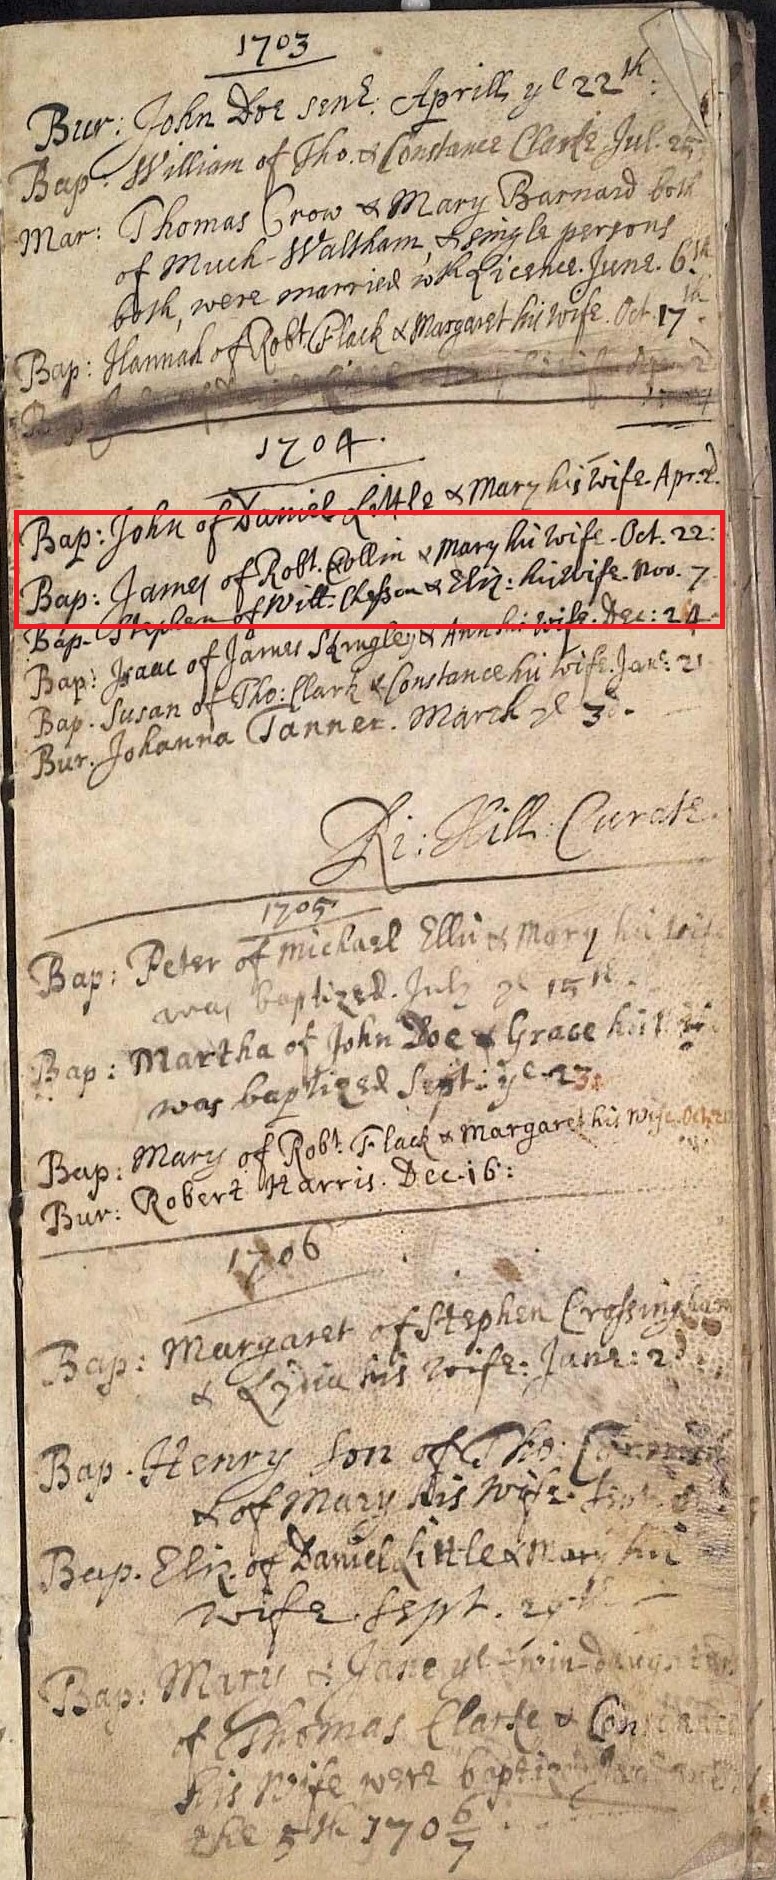 1703
Bur: John Doe senr: Aprill ye 22th:
Bap: William of Tho. & Constance Clarke Jul. 25
Mar: Thomas Crow & Mary Barnard both
of Much-Waltham, & single persons
both, were married wth Licence. June. 6th
Bap: Hannah of Robt. Flack & Margaret his wife. Oct. 17th.
1704.
Bap: John of Daniel Little & Mary his Wife. Apr: 2d.
Bap: James of Robt. Collin & Mary his Wife. Oct. 22:
Bap: Stephen of Will: & Eliz: his Wife. Nov. 7
Bap: Isaac of James & Ann his Wife. Dec: 24
Bap. Susan of Tho: Clark & Constance his wife. Jan: 21
Bur. Johanna Tanner. March ye 3d.
Ri: Hill: Curate.
1705
Bap: Peter of Michael Ellis & Mary his wife
was baptized. July ye 15th.
Bap: Martha of John Doe & Grace his
was baptized Sept: ye 23:
Bap: Mary of Robt. Flack & Margaret his wife. Oct.
Bur: Robert Harris. Dec. 16:
1706
Bap: Margaret of Stephen Crossingham
& Lydia his Wife: June: 2d
Bap. Henry Son of Tho:
& of Mary his Wife.
Bap. Eliz. of Daniel Little & Mary his
wife. Sept. 29th
Bap: Mary & Jane ye twin daughters
of Thomas Clarke & Constance
his Wife were baptized
the 5th 170 6/7